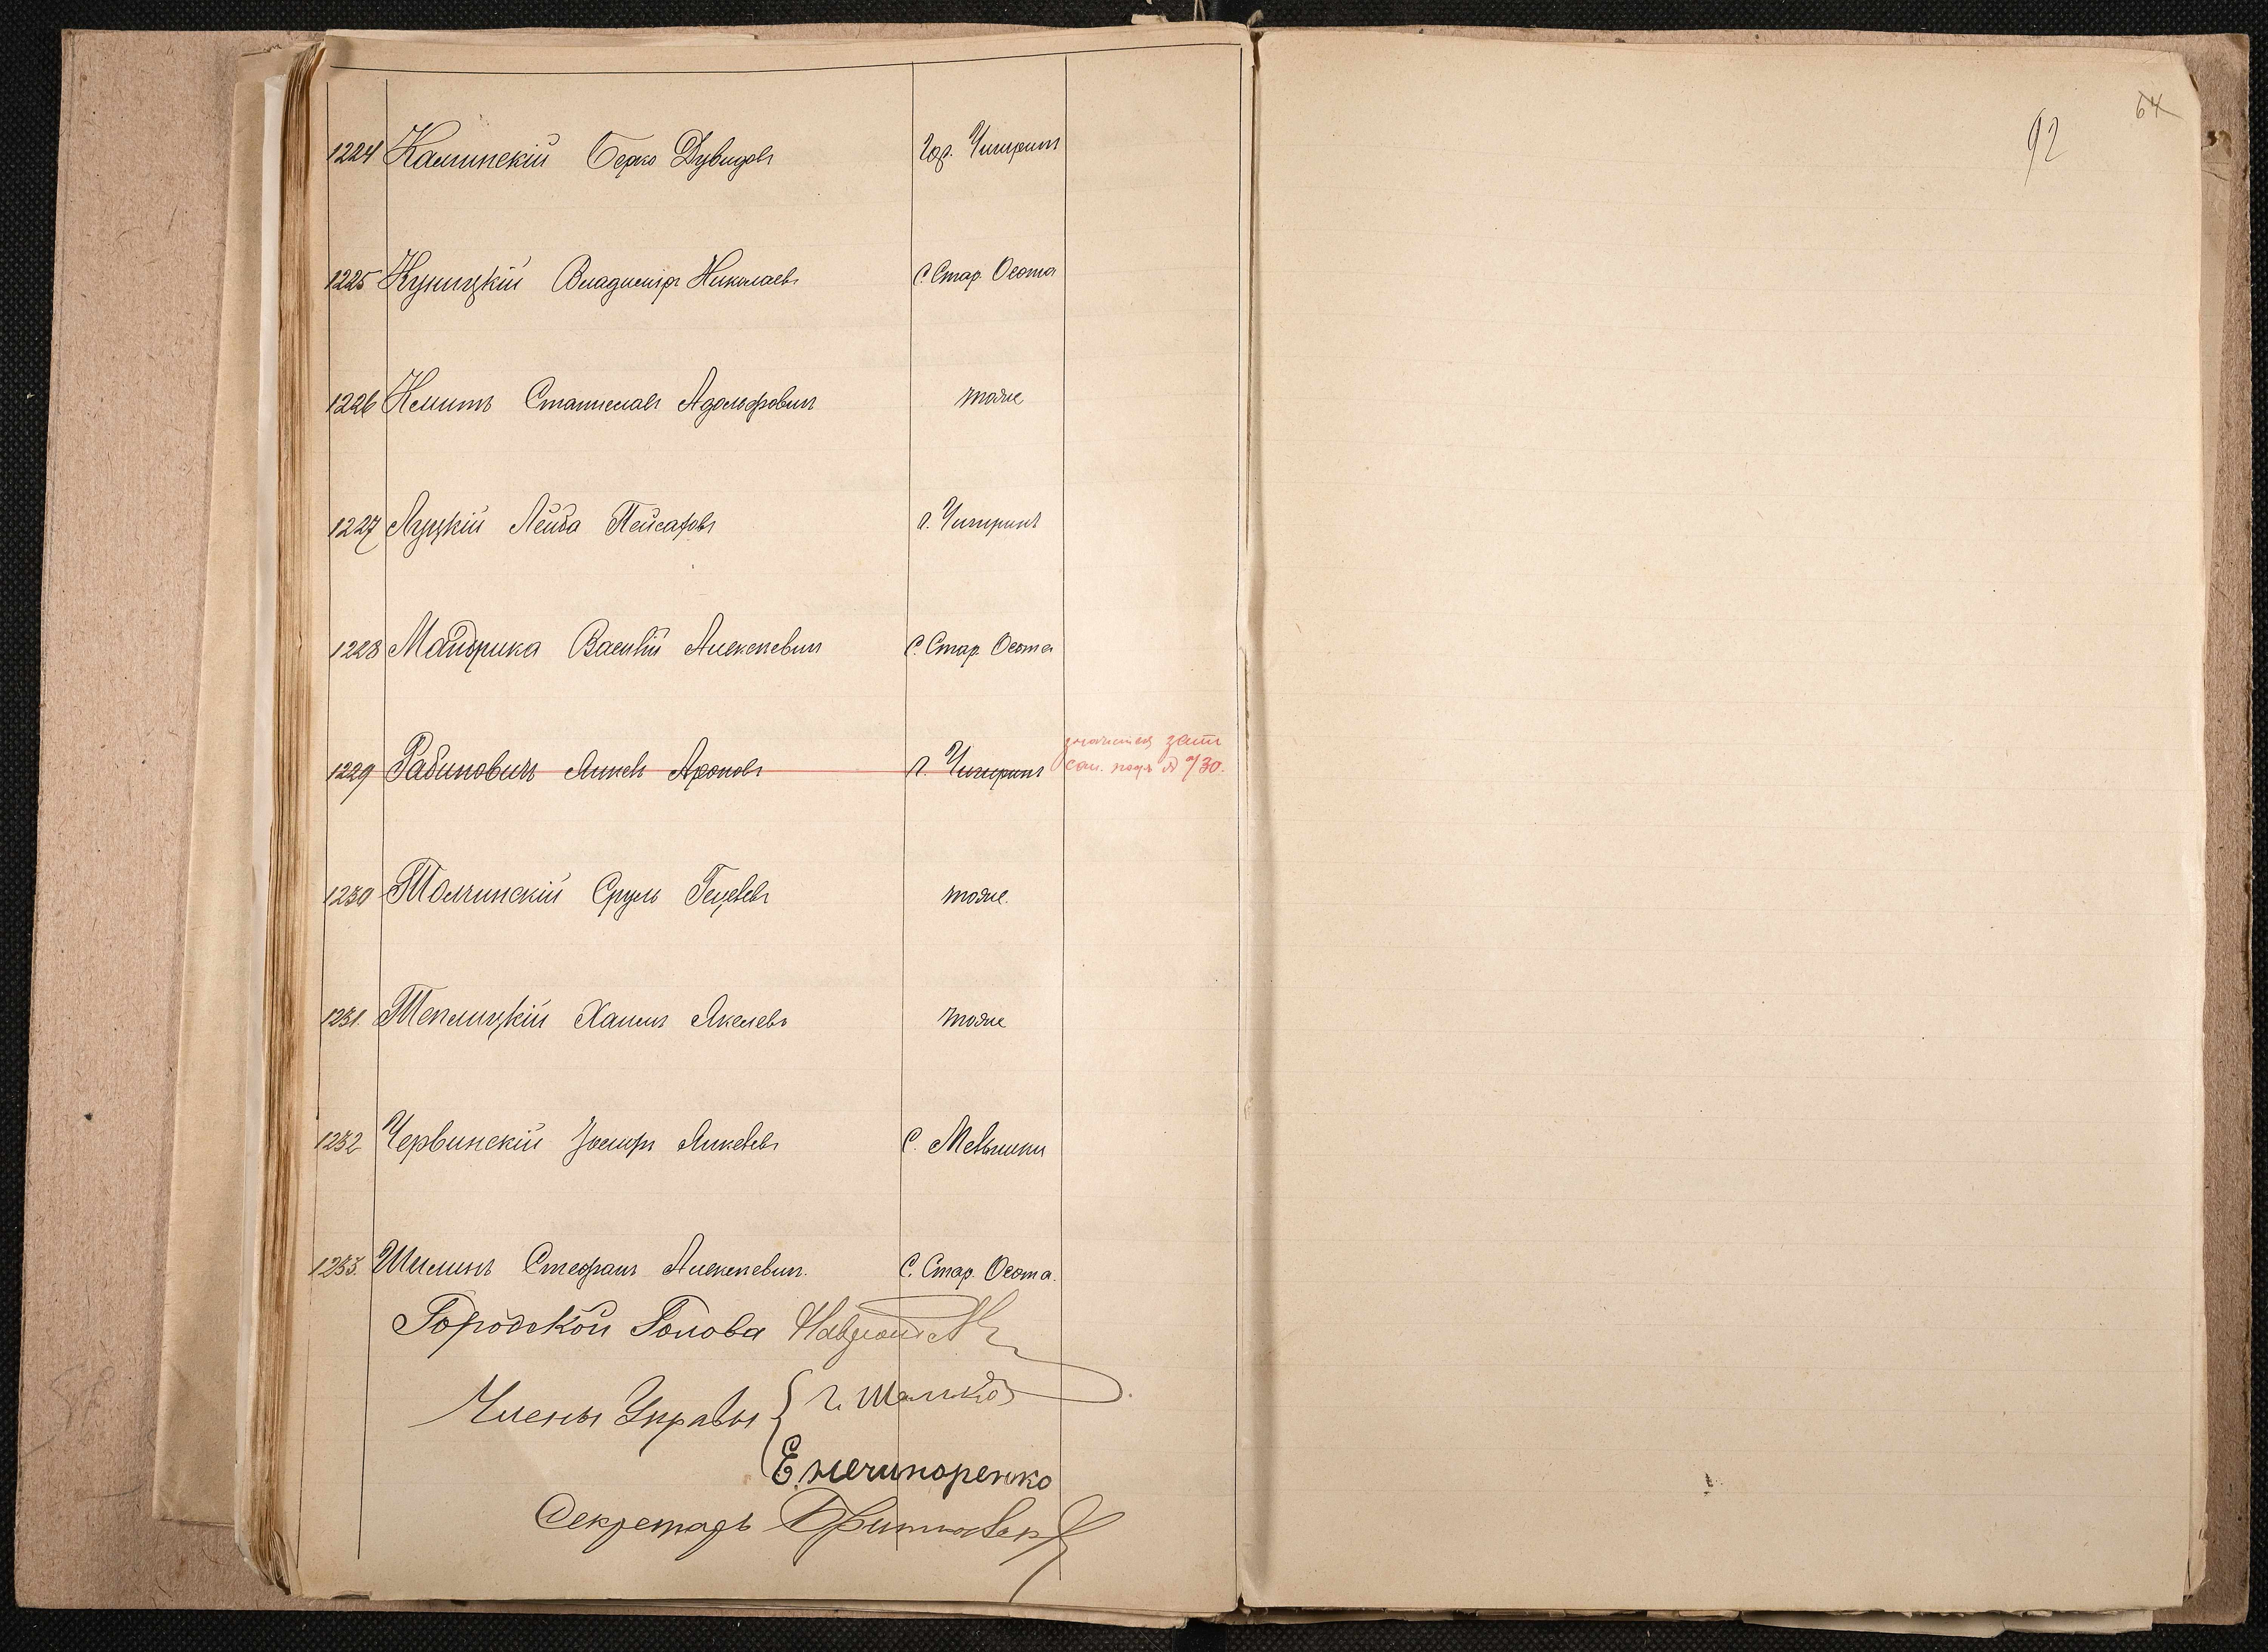 64
92
1224 Калинскій Берко Дувидовъ Гор. Чигиринъ
1225 Куницкій Владиміръ Николаевъ С. Стар. Осота
1226 Станиславъ Адольфовичъ тоже
1227 Луцкій Лейба Пейсаховъ г. Чигиринъ
1228 Майбрика Василій Алексѣевич С. Стар. Осота
1229 Рабиновичъ Янкель Ароновъ г. Чигиринъ
значится
под № 9/30.
1230 Толчинскій Сруль Гецелевъ тоже.
1231. Теплицкій Хаимъ Акелевъ тоже
1232 Червинскій Іосифъ Янкелевъ С. Мельники
1233. Шилинъ Стефанъ Алексѣевич. С. Стар. Осота.
Городской Голова
Члены Управы
Е. Нечипоренко
Секретарь